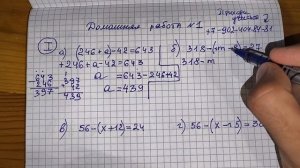 Домашняя работа №1
I
а) (246+а)-42=643
+246+а-42=643
а=643-246+42
а=439
-643
246
397
+397
42
439
б) 318-(m-
=27
318-m
в) 56-(x+12)=24
г) 56-(x-15)=30